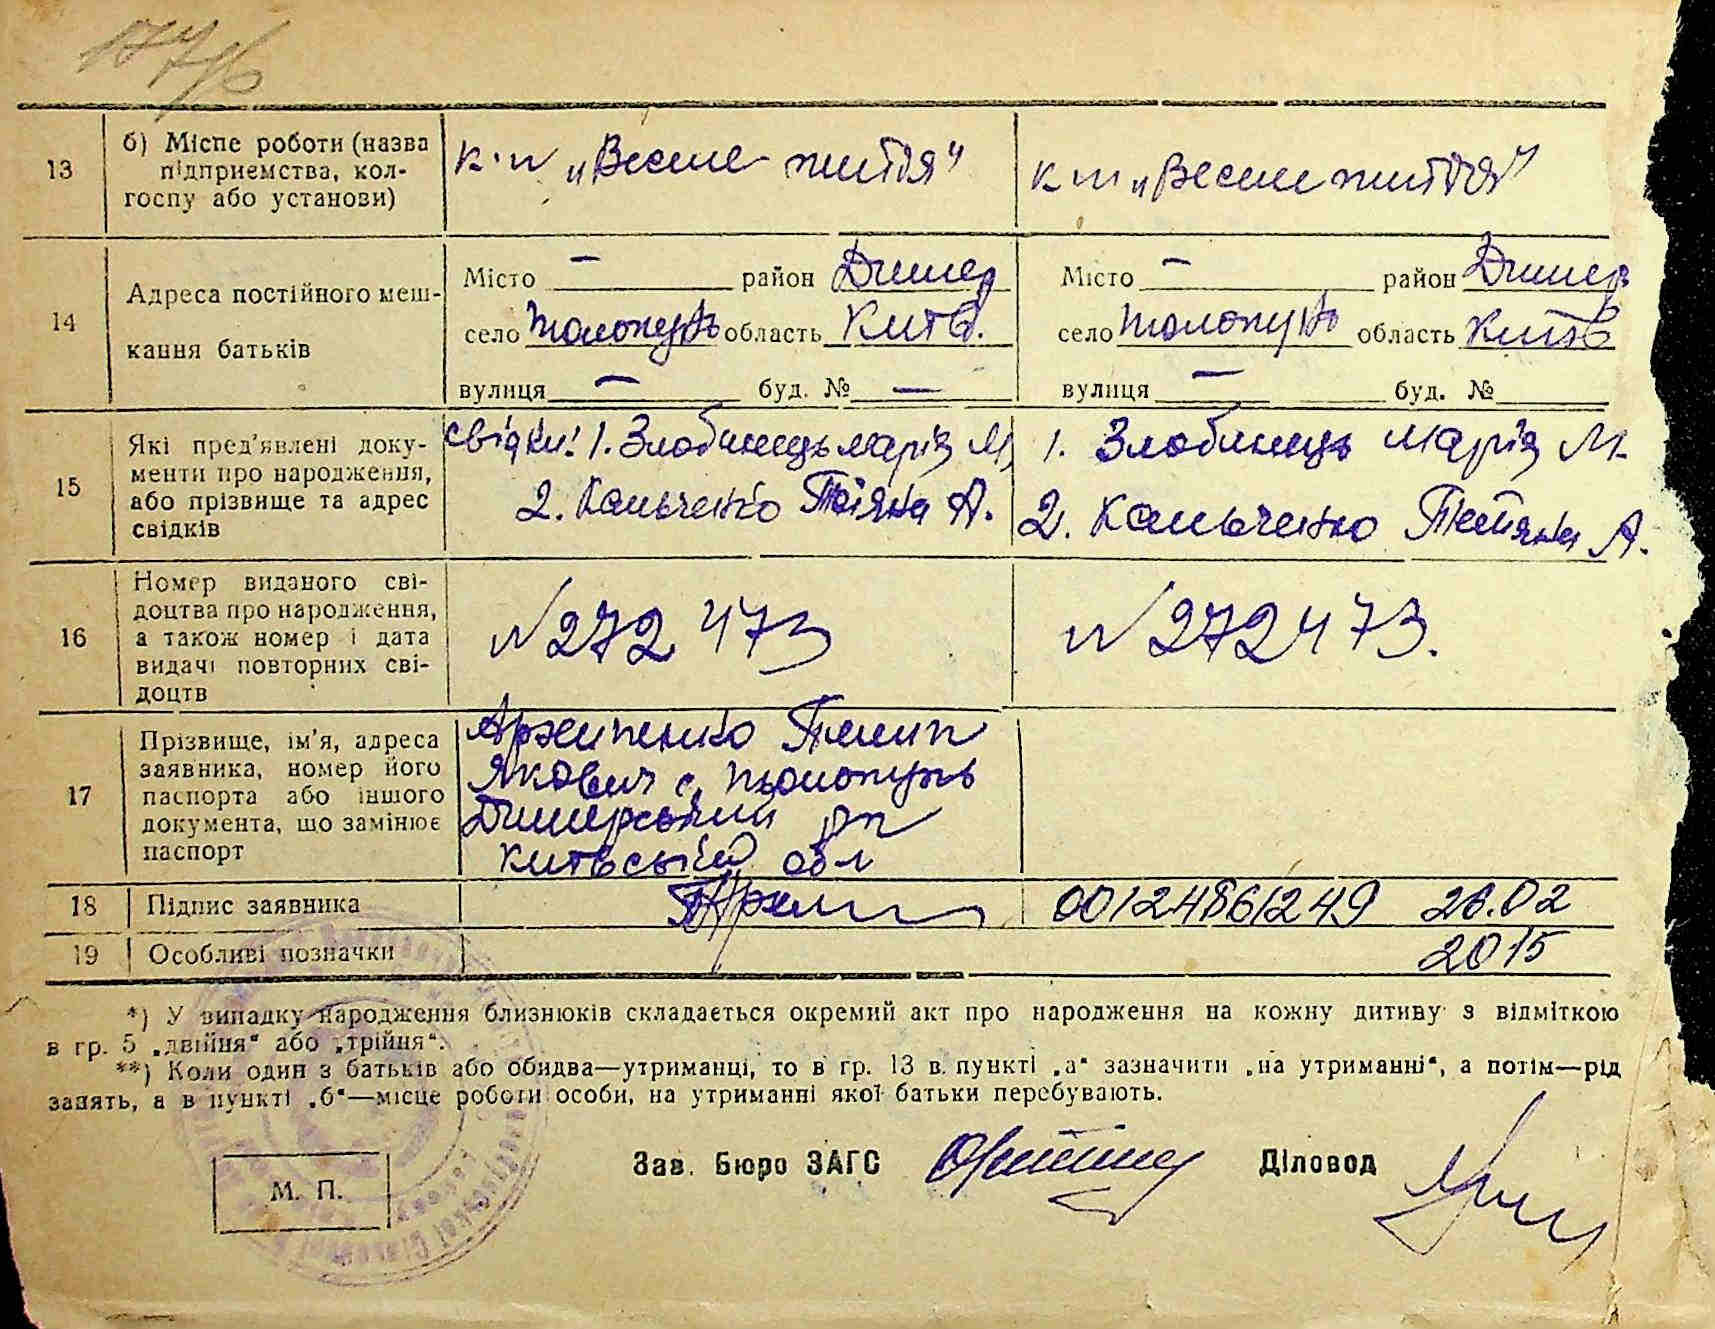 13 б) Місце роботи (назва підприємства, кол-госпу або установи)
к-п „Веселе життя“ к-п „Веселе життя“
14 Адреса постійного меш-
кання батьків
Місто — район Димер Місто — район Димер
село Толокунь область Київ. село Толокунь область Київ
вулиця — буд. № — вулиця — буд. №
15 Які пред'явлені доку-
менти про народження,
або прізвище та адрес
свідків
свідки: 1. Злобинець Марія М. 1. Злобинець Марія М.
2. Кальченко Тетяна А. 2. Кальченко Тетяна А.
16 Номер виданого сві-
доцтва про народження,
а також номер і дата
видачі повторних сві-
доцтв
№272473 №272473.
17 Прізвище, ім'я, адреса
заявника, номер його
паспорта або іншого
документа, що замінює
паспорт
Архипенко Пилип
Якович с. Толокунь
Димерський р-н
Київський обл
18 Підпис заявника
00124861249 26.02
19 Особливі позначки 2015
*) У випадку народження близнюків складається окремий акт про народження на кожну дитину з відміткою
в гр. 5 „двійня“ або „трійня“.
**) Коли один з батьків або обидва—утриманці, то в гр. 13 в. пункті „а“ зазначити „на утриманні“, а потім—рід
занять, а в пункті „б“—місце роботи особи, на утриманні якої батьки перебувають.
Зав. Бюро ЗАГС Діловод
М. П.